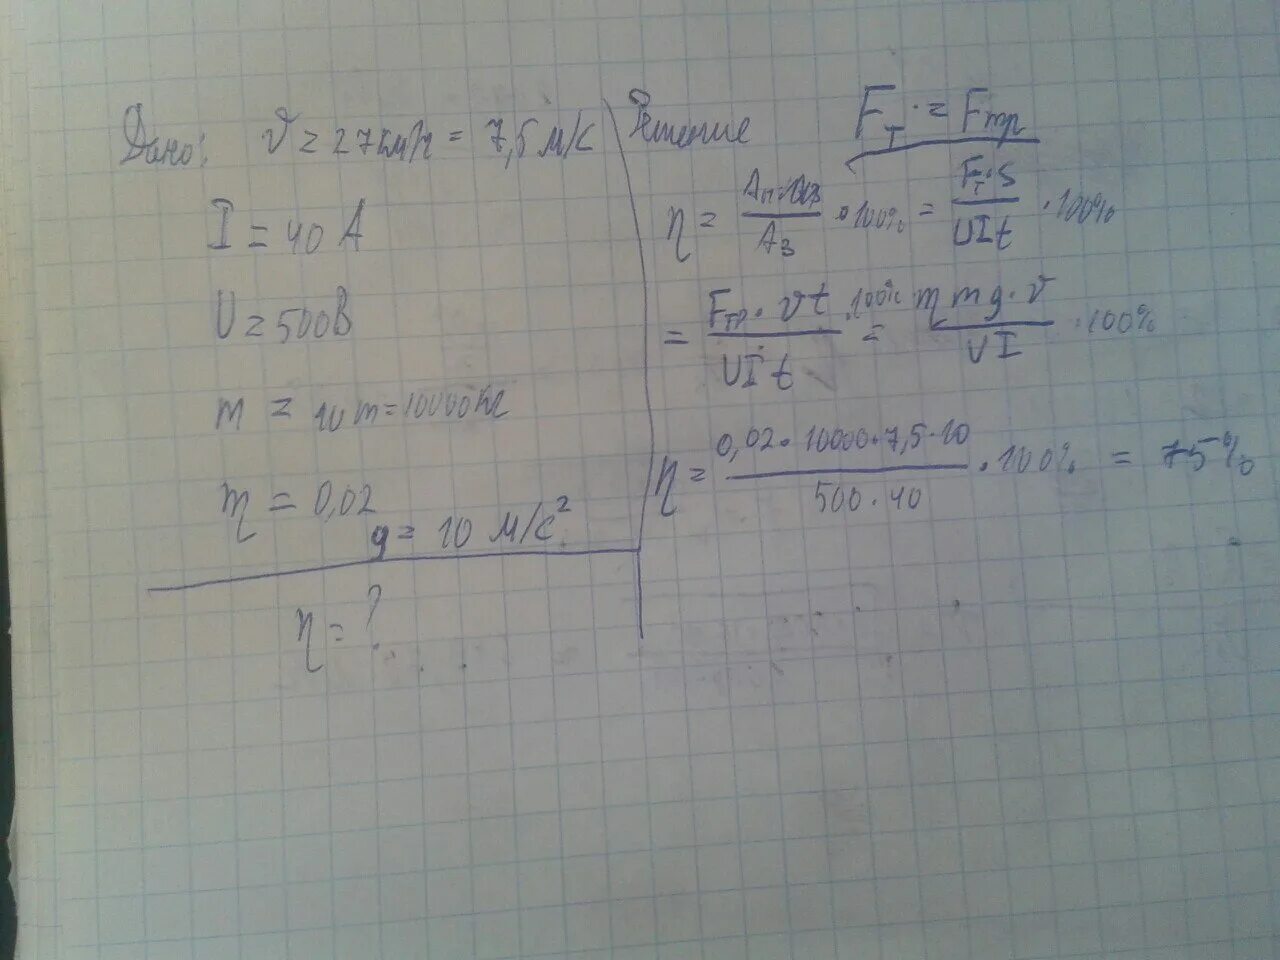 Дано: v = 27км/ч = 7,5 м/с
I = 40 А
U = 500В
m = 10т = 10000кг
η = 0,02
g = 10 м/с²
η = ?
Решение F_T = F_тр
η = A_п / A_з · 100% = F_T · S / UIt · 100%
= F_тр · vt / UIt · 100% = η mg · v / UI · 100%
η = 0,02 · 10000 · 7,5 · 10 / 500 · 40 · 100% = 75%